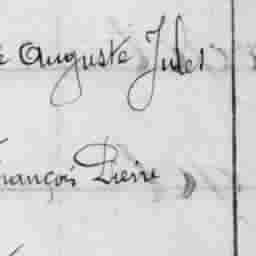 Auguste Jules
François Pierre